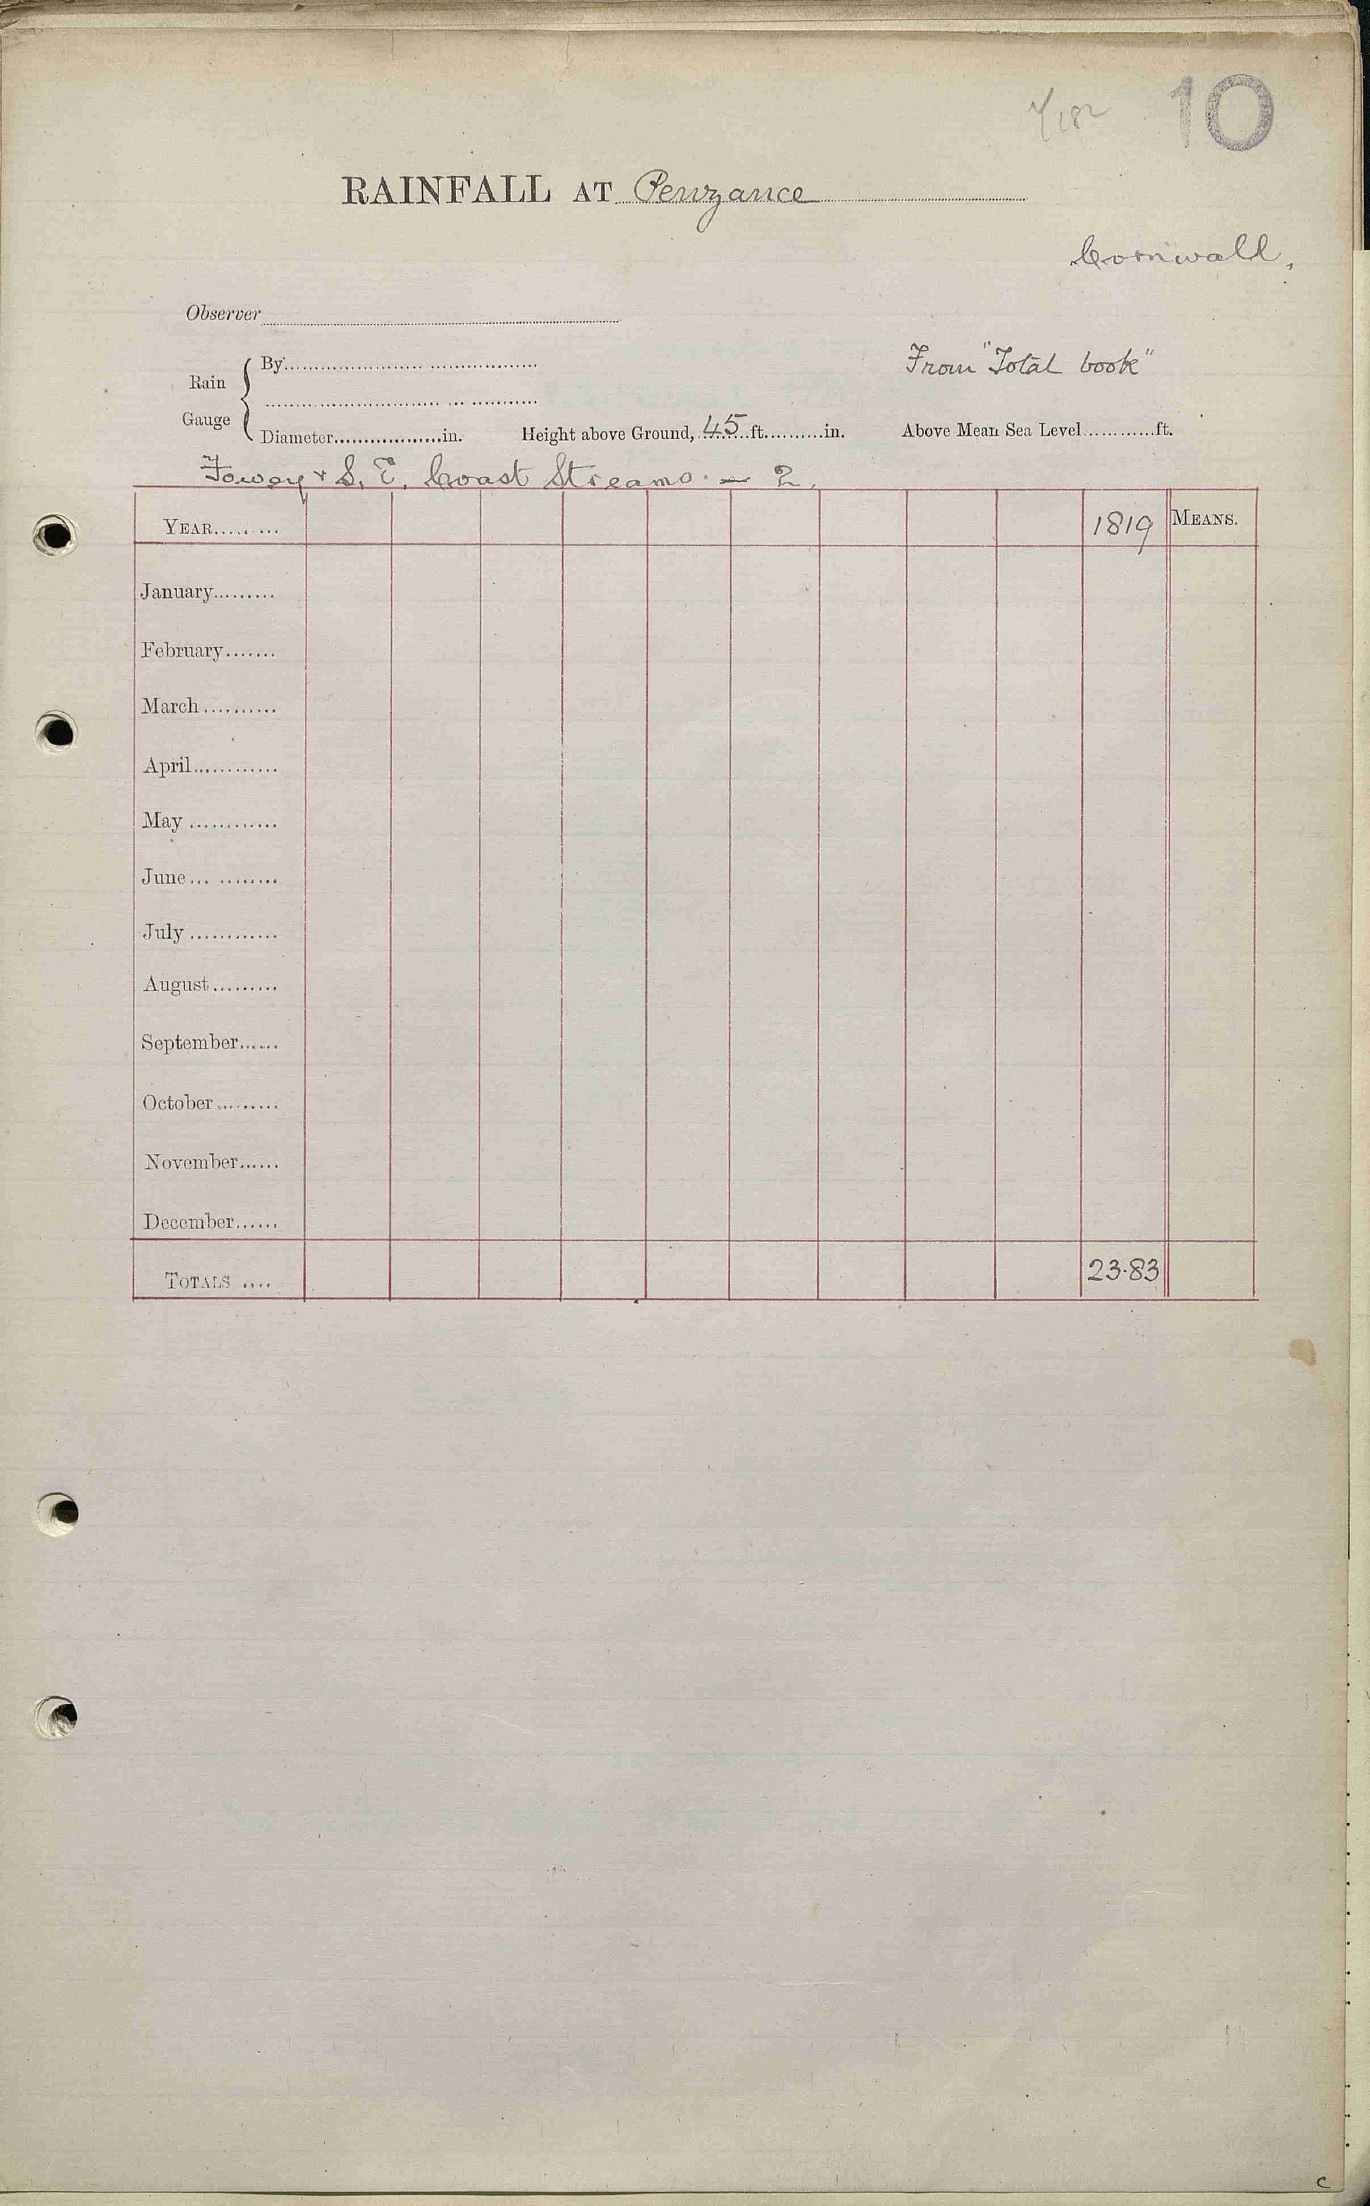 10
RAINFALL AT Penzance
Cornwall,
Observer
From "Total book"
Rain Gauge { By
Diameter in. Height above Ground, 45 ft. in. Above Mean Sea Level ft.
Fowey & S. E. Coast Streams. - 2.
YEAR 1819 MEANS.
January
February
March
April
May
June
July
August
September
October
November
December
TOTALS 23.83
c